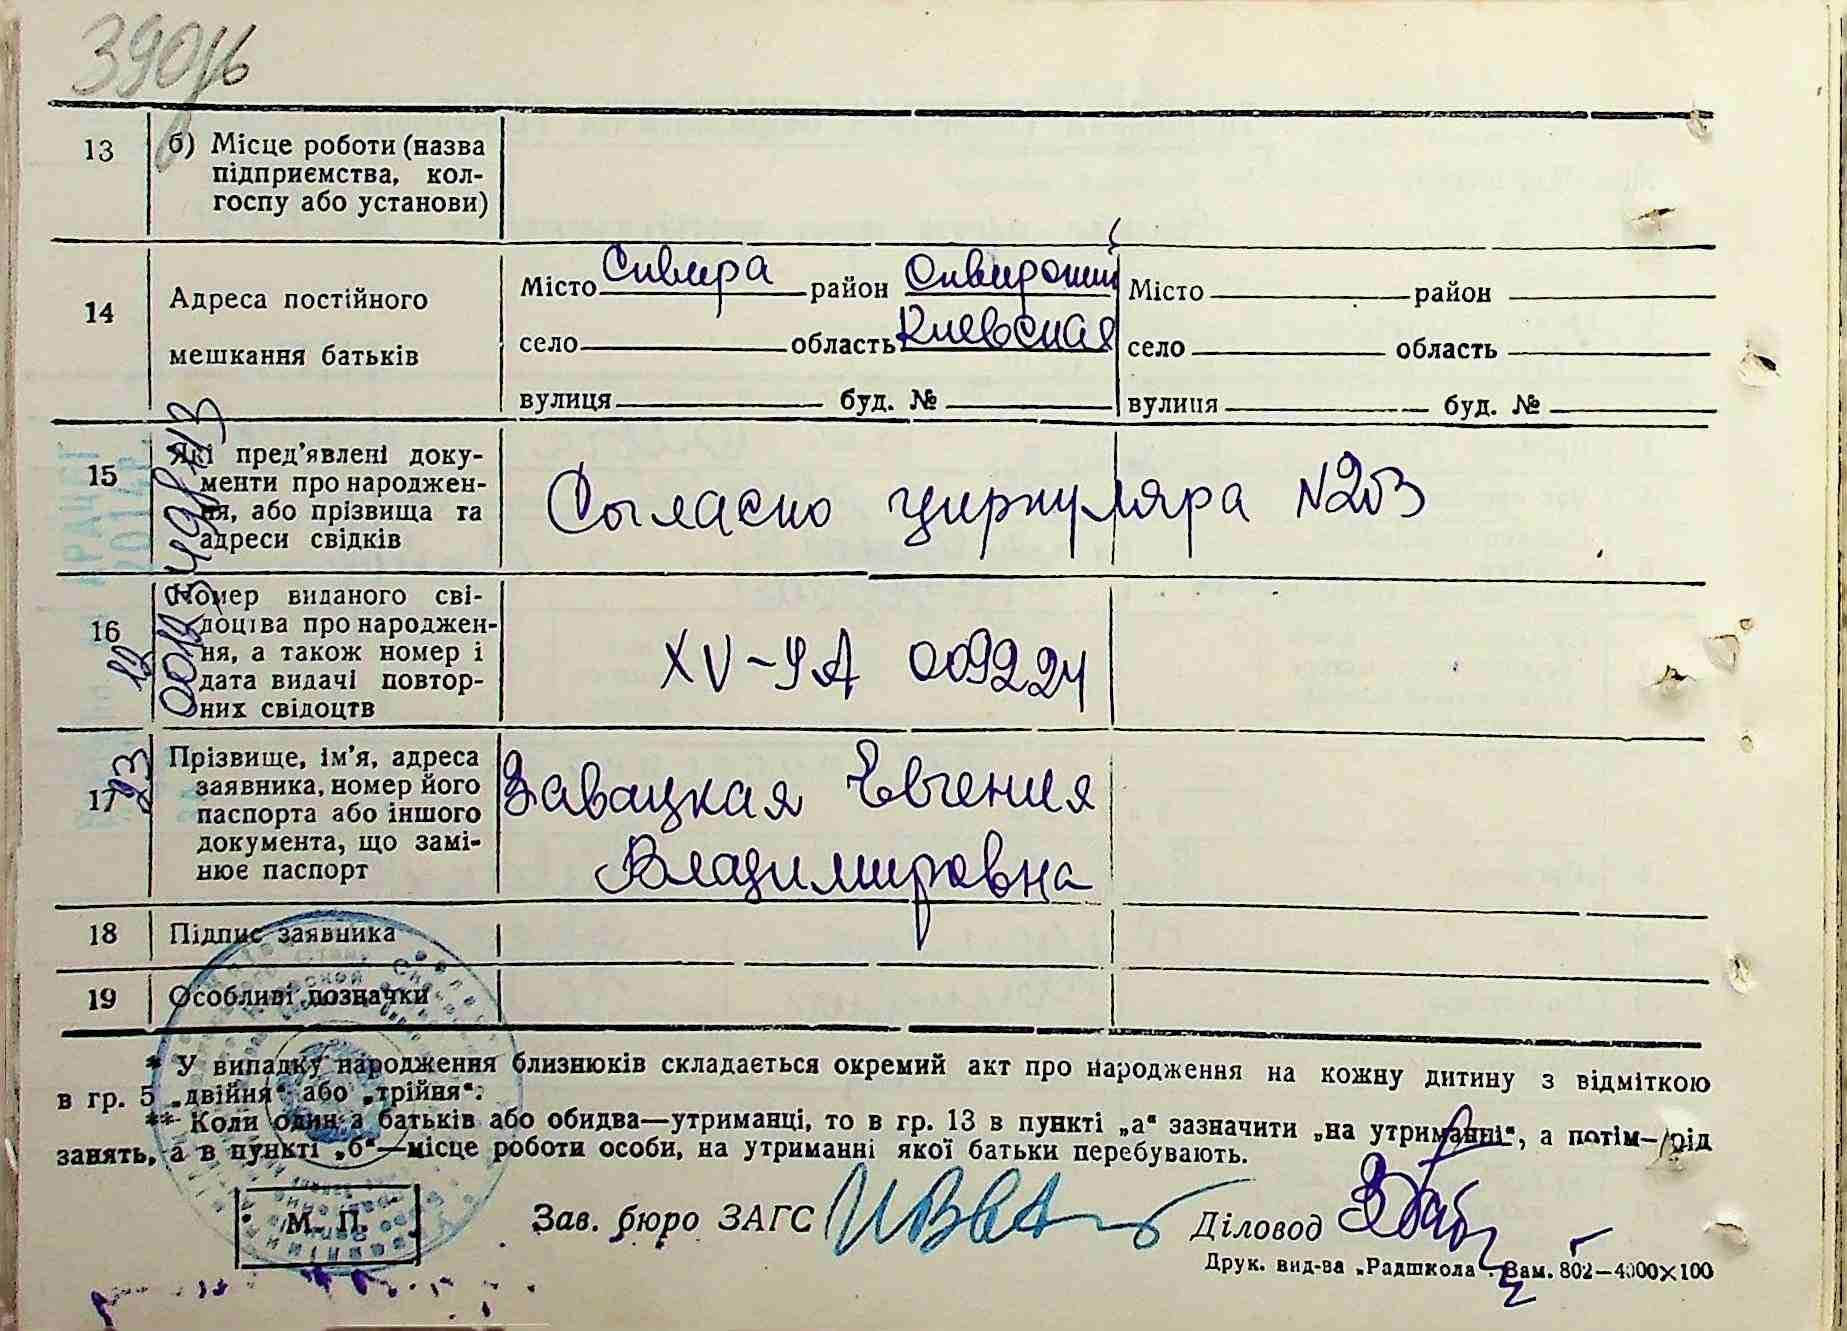 390
13
б) Місце роботи (назва
підприємства, кол-
госпу або установи)
14
Адреса постійного
мешкання батьків
Місто Сквира район Сквирский
село область Киевская
вулиця буд. №
Місто район
село область
вулиця буд. №
15
Які пред'явлені доку-
менти про народжен-
ня, або прізвища та
адреси свідків
Согласно циркуляра №203
16
Номер виданого сві-
доцтва про народжен-
ня, а також номер і
дата видачі повтор-
них свідоцтв
XV-УА 009224
17
Прізвище, ім'я, адреса
заявника, номер його
паспорта або іншого
документа, що замі-
нює паспорт
Завацкая Евгения
Владимировна
18
Підпис заявника
19
Особливі позначки
* У випадку народження близнюків складається окремий акт про народження на кожну дитину з відміткою
в гр. 5 „двійня“ або „трійня“.
** Коли один з батьків або обидва—утриманці, то в гр. 13 в пункті „а“ зазначити „на утриманні“, а потім—рід
занять, а в пункті „б“—місце роботи особи, на утриманні якої батьки перебувають.
М. П.
Зав. бюро ЗАГС
Діловод
Друк. вид-ва „Радшкола“. Зам. 802—4000×100